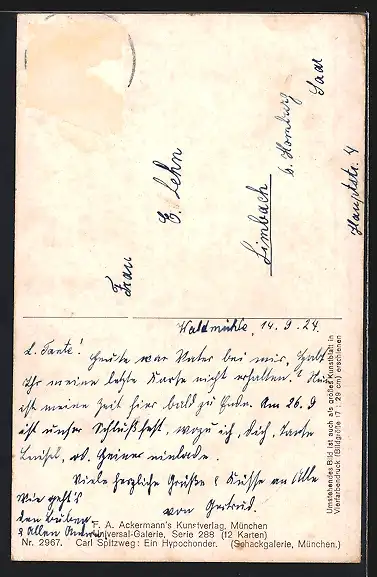 Frau
E. Lehn
Limbach
b. Homburg
Saar
Hauptstr. 4
Waldmühle, 14.9.24.
L. Tante! Heute war Vater bei mir, habt
Ihr meine letzte Karte nicht erhalten? Nun
ist meine Zeit hier bald zu Ende. Am 26.9
ist unser Schlußfest, wozu ich, Dich, Tante
Luisel, od. Heiner einlade.
Viele herzliche Grüße & Küsse an Alle
von Gertrud.
Wie geht's
den Buben
& Allen Andern
F. A. Ackermann's Kunstverlag, München
Universal-Galerie, Serie 268 (12 Karten)
Nr. 2967. Carl Spitzweg: Ein Hypochonder. (Schackgalerie, München.)
Umstehendes Bild ist auch als großes Kunstblatt in
Vierfarbendruck (Bildgröße 17 : 29 cm) erschienen